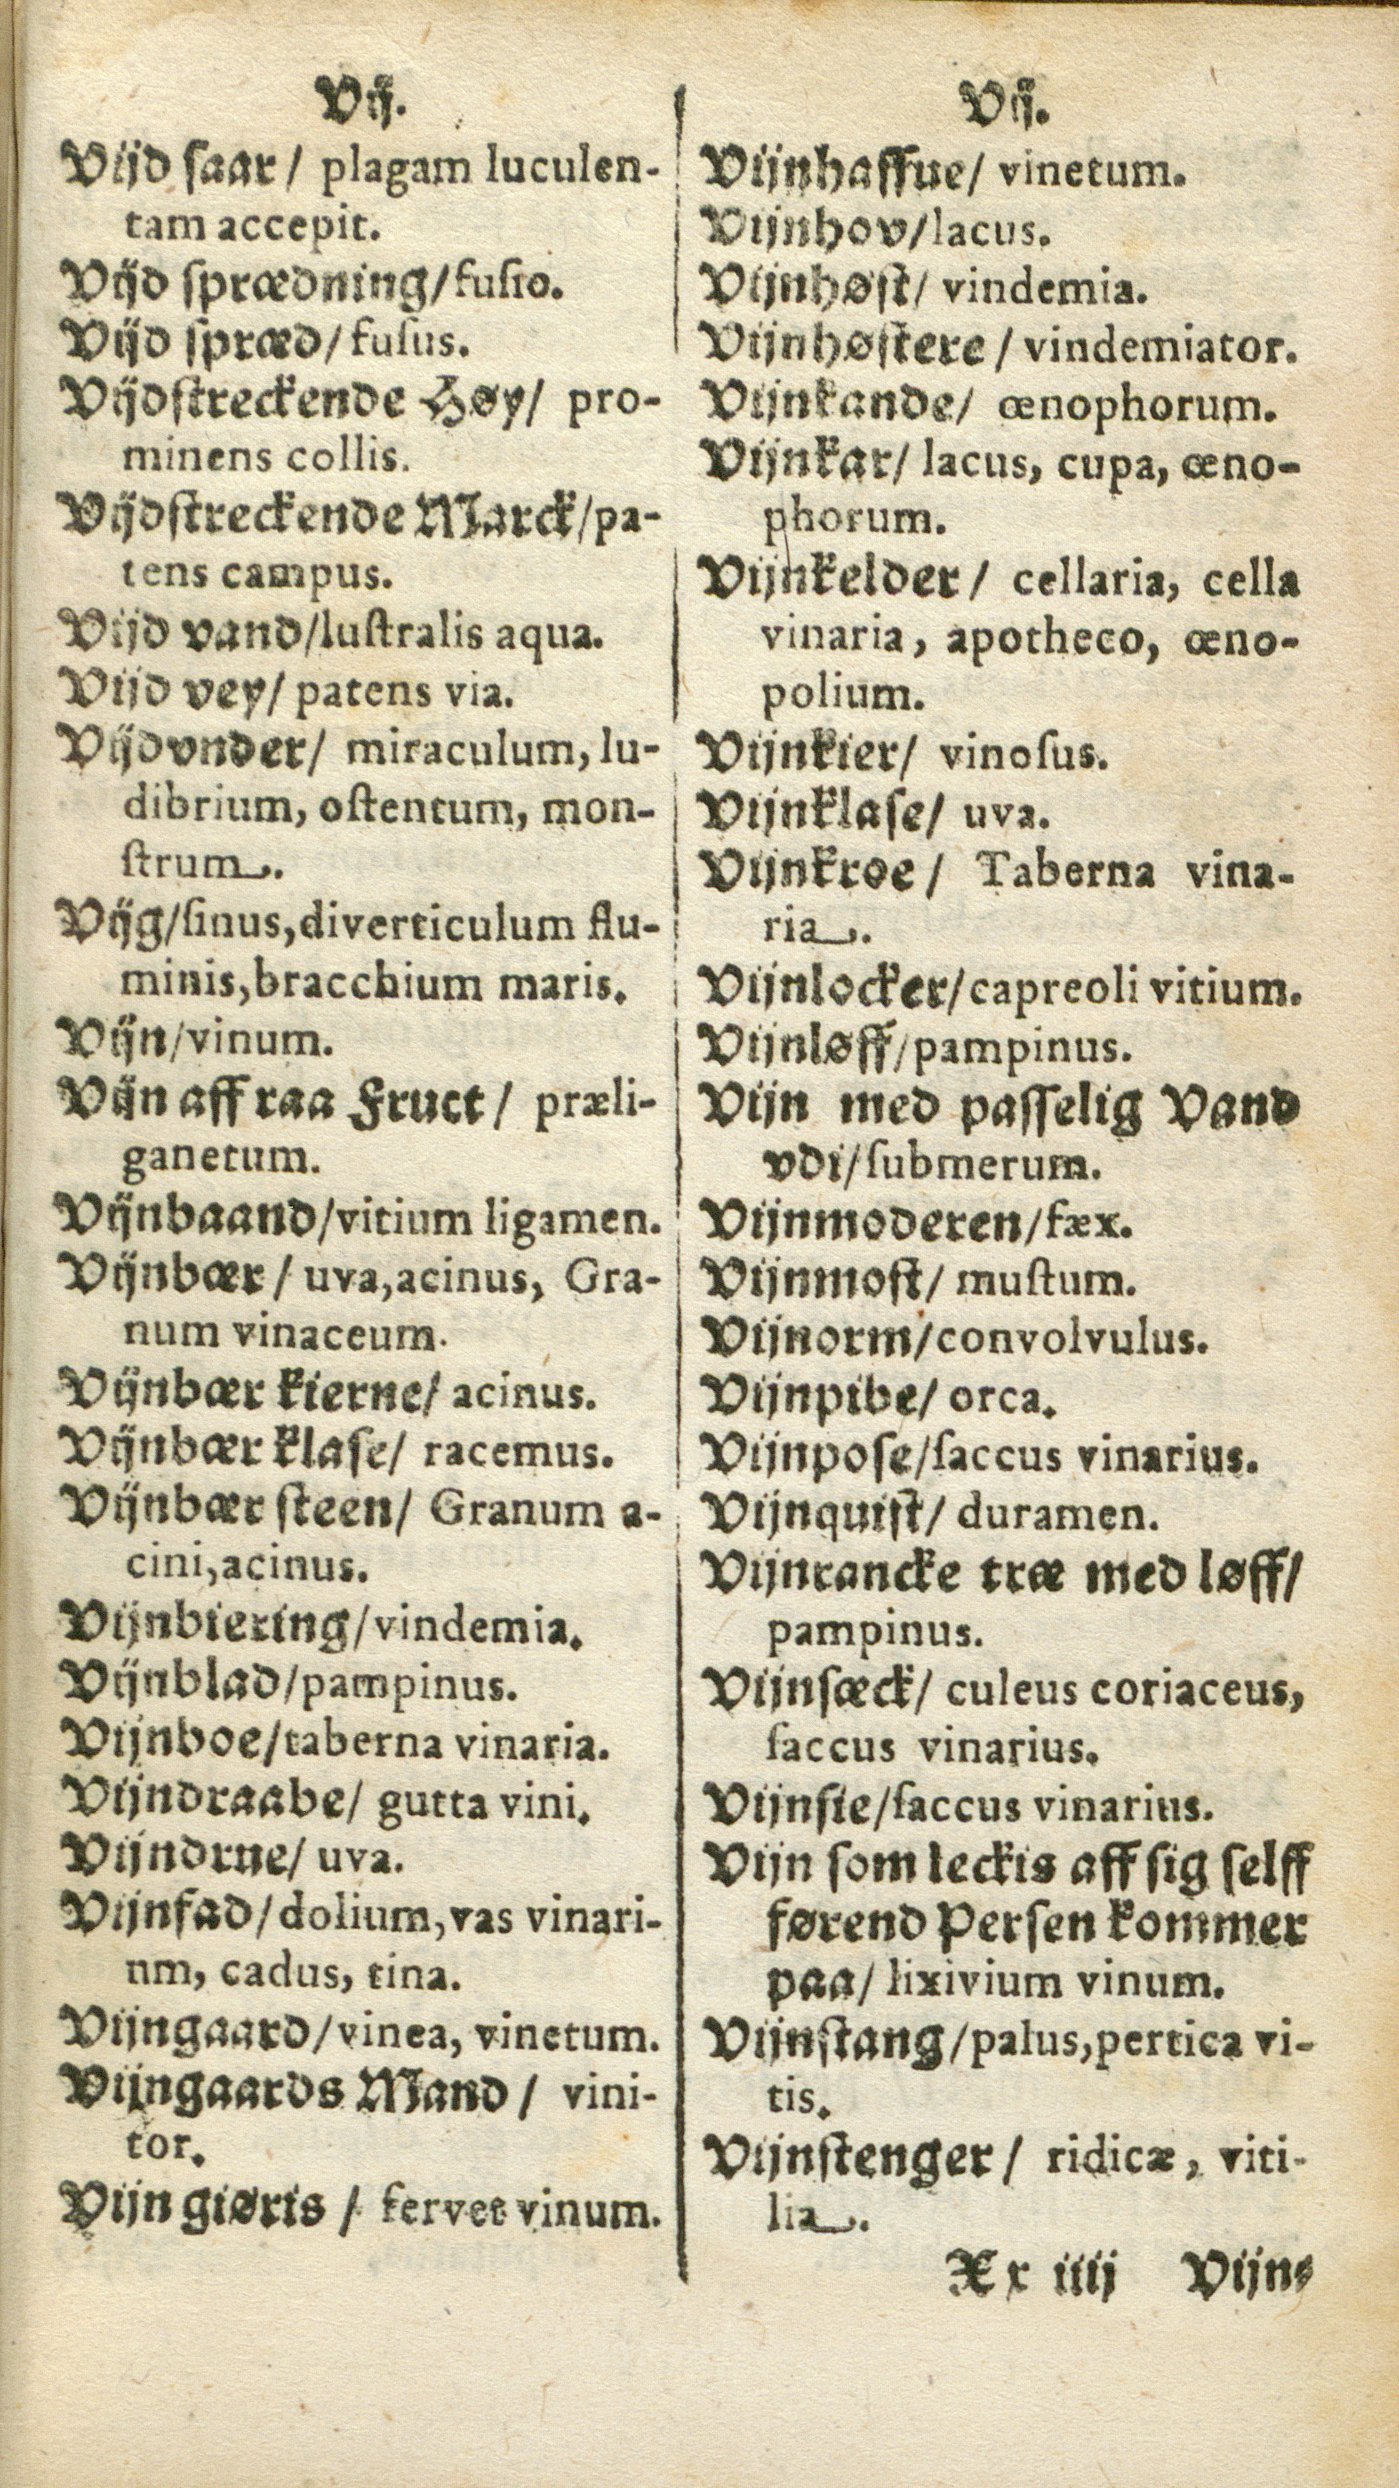 Vij.
Vijd saar / plagam luculen-
tam accepit.
Vijd sprædning/fusio.
Vijd spræd/fusus.
Vijdstreckende Høy/ pro-
minens collis.
Vijdstreckende Marck/pa-
tens campus.
Vijd vand/lustralis aqua.
Vijd vey/ patens via.
Vijdvnder/ miraculum, lu-
dibrium, ostentum, mon-
strum.
Vijg/sinus,diverticulum flu-
minis,bracchium maris.
Vijn/vinum.
Vijn aff raa Fruct / præli-
ganetum.
Vijnbaand/vitium ligamen.
Vijnbær / uva,acinus, Gra-
num vinaceum.
Vijnbær kierne/ acinus.
Vijnbær klase/ racemus.
Vijnbær steen/ Granum a-
cini,acinus.
Vijnbiering/vindemia.
Vijnblad/pampinus.
Vijnboe/taberna vinaria.
Vijndraabe/ gutta vini.
Vijndrue/ uva.
Vijnfad/dolium,vas vinari-
nm, cadus, tina.
Vijngaard/vinea, vinetum.
Vijngaards Mand / vini-
tor.
Vijn giøris / fervet vinum.
Vij.
Vijnhaffue/ vinetum.
Vijnhov/lacus.
Vijnhøst/ vindemia.
Vijnhøstere / vindemiator.
Vijnkande/ œnophorum.
Vijnkar/ lacus, cupa, œno-
phorum.
Vijnkelder/ cellaria, cella
vinaria, apotheco, œno-
polium.
Vijnkier/ vinosus.
Vijnklase/ uva.
Vijnkroe / Taberna vina-
ria.
Vijnlocker/capreoli vitium.
Vijnløff/pampinus.
Vijn med passelig Vand
vdi/submerum.
Vijnmoderen/fæx.
Vijnmost/ mustum.
Vijnorm/convolvulus.
Vijnpibe/ orca.
Vijnpose/saccus vinarius.
Vijnquist/ duramen.
Vijnrancke træ med løff/
pampinus.
Vijnsæck/ culeus coriaceus,
saccus vinarius.
Vijnsie/saccus vinarius.
Vijn som leckis aff sig selff
førend Persen kommer
paa/ lixivium vinum.
Vijnstang/palus,pertica vi-
tis.
Vijnstenger / ridicæ, viti-
lia.
Xx iiij Vijns